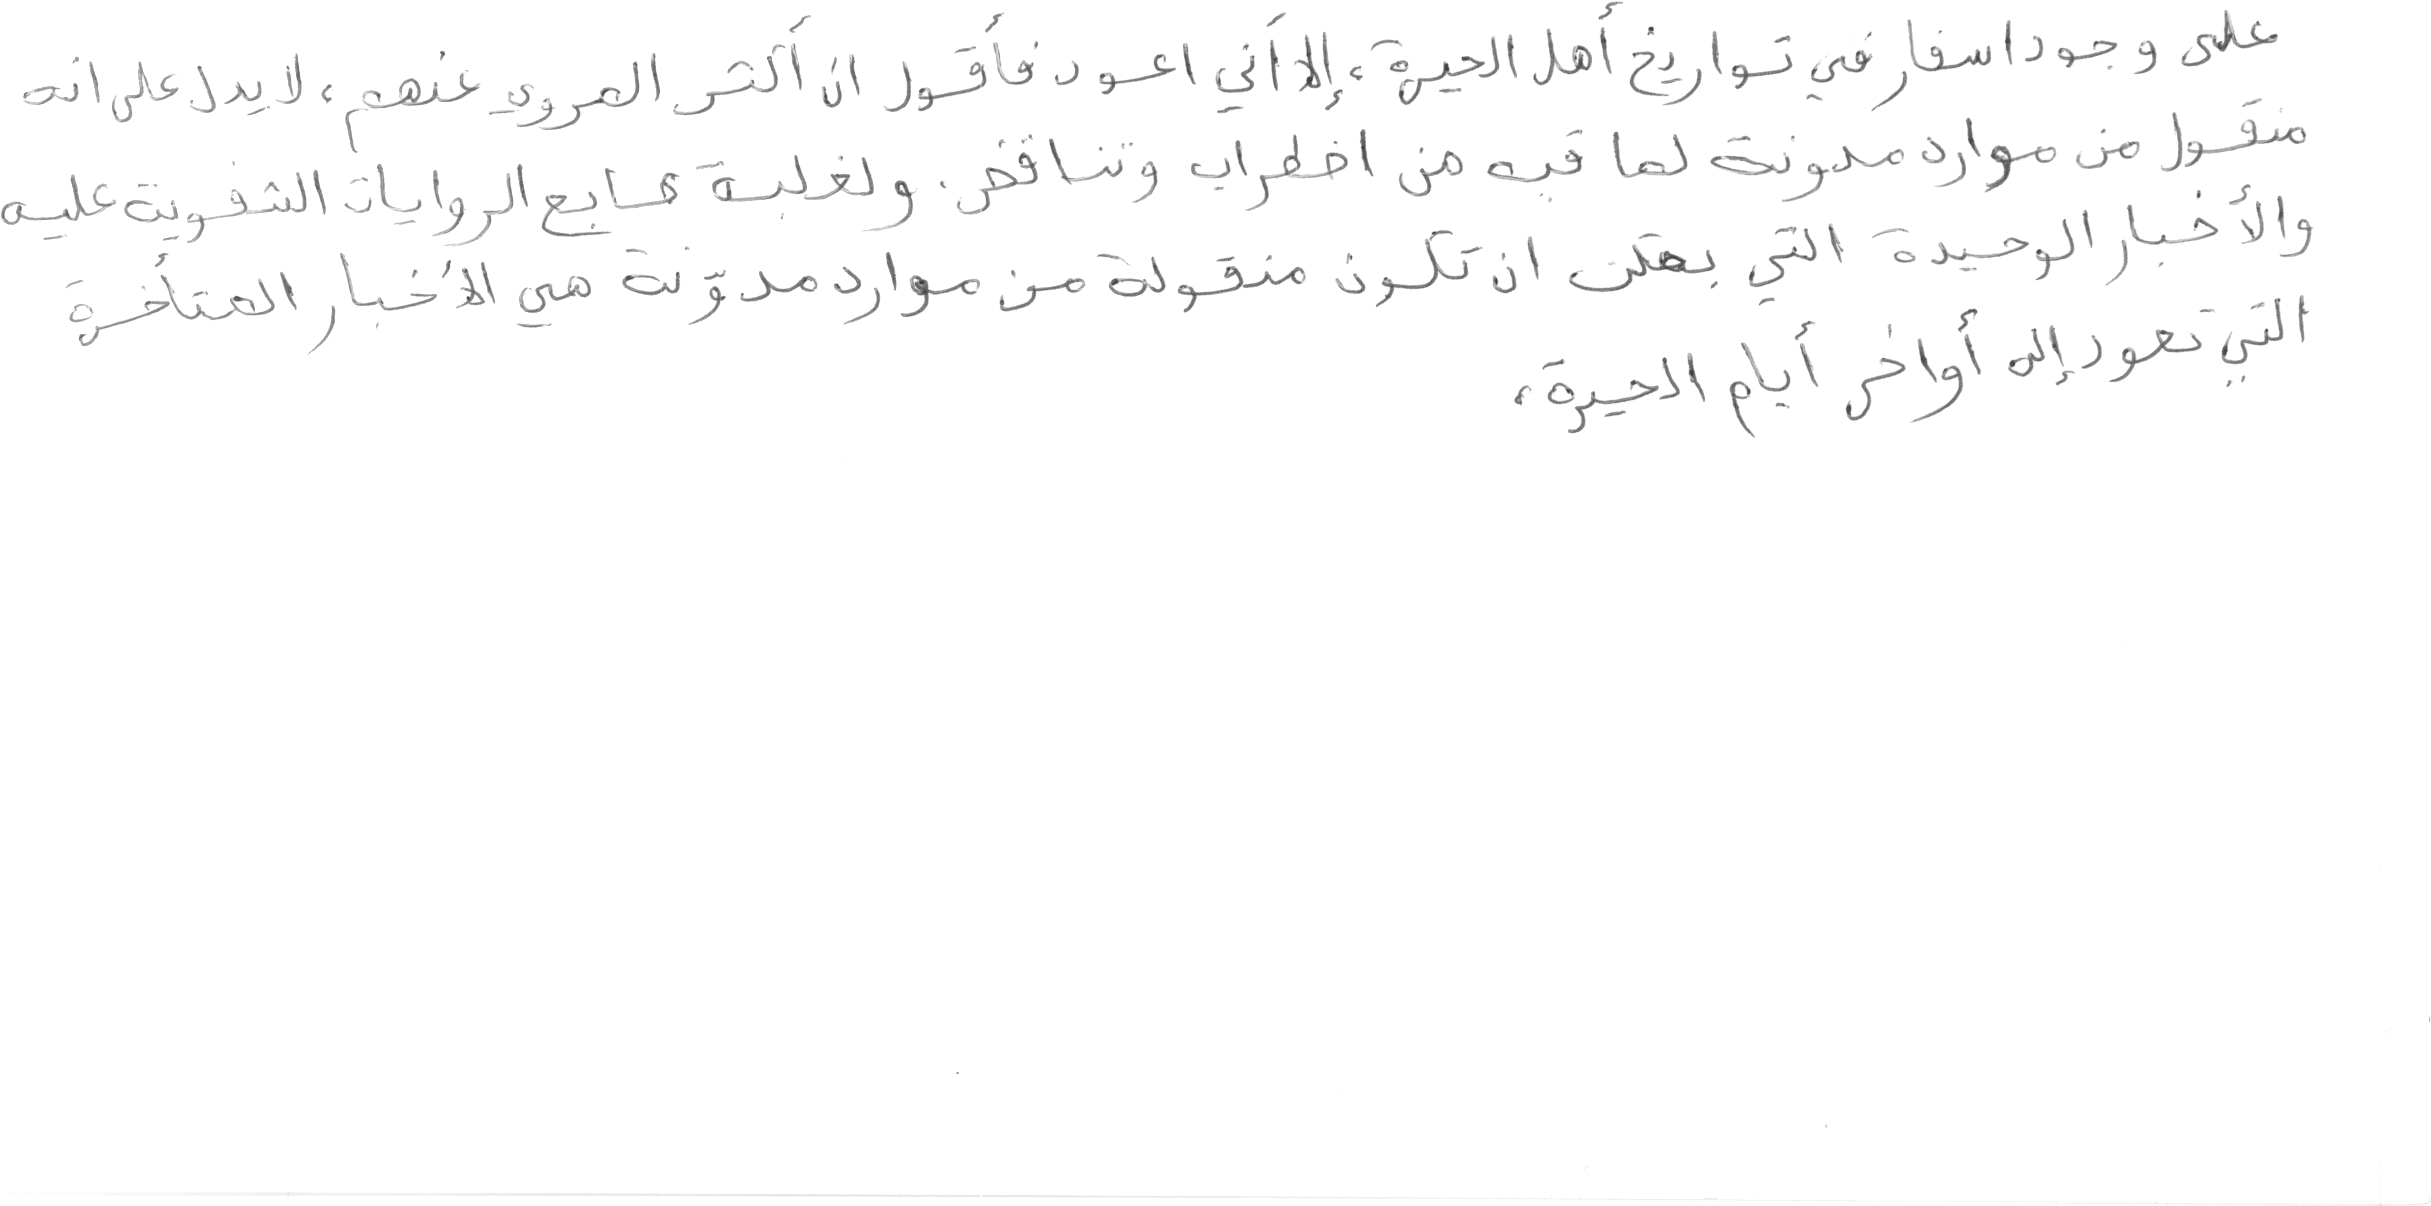 على وجود اسفار في تواريخ أهل الحيرة، إلا أني اعود فأقول ان أكثر المروي عنهم، لا يدل على انه
منقول من موارد مدونة لما فيه من اضطراب وتناقض. ولغلبة طابع الروايات الشفوية عليه
والأخبار الوحيدة التي يمكن ان تكون منقولة من موارد مدوّنة هي الأخبار المتأخرة
التي تعود إلى أواخر أيام الحيرة،